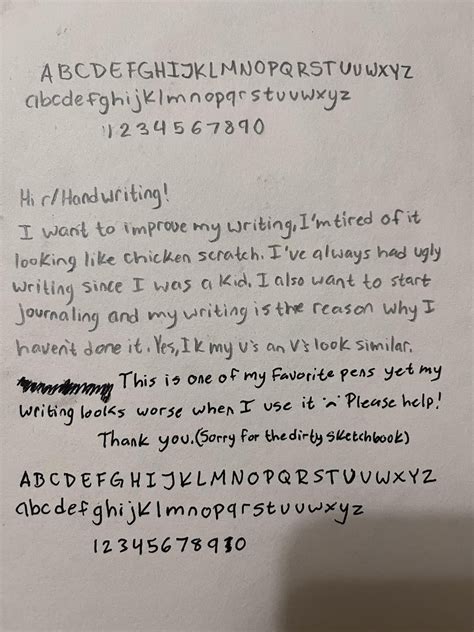 ABCDEFGHIJKLMNOPQRSTUVWXYZ
abcdefghijklmnopqrstuvwxyz
1234567890
Hi r/Handwriting!
I want to improve my writing, I'm tired of it
looking like chicken scratch. I've always had ugly
writing since I was a kid. I also want to start
journaling and my writing is the reason why I
haven't done it. Yes, Ik my u's an v's look similar.
This is one of my favorite pens yet my
writing looks worse when I use it :^( Please help!
Thank you. (Sorry for the dirty sketchbook)
ABCDEFGHIJKLMNOPQRSTUVWXYZ
abcdefghijklmnopqrstuvwxyz
1234567890